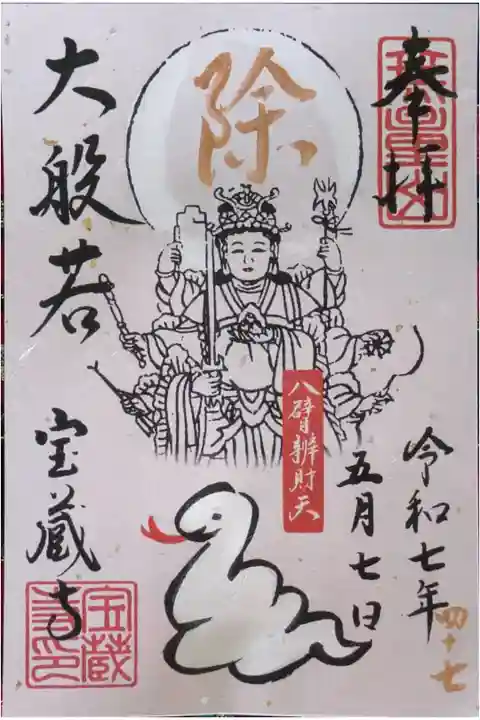 奉拝
令和七年
五月七日
四十七
除
八臂辨財天
大般若
宝蔵寺
宝蔵
寺印